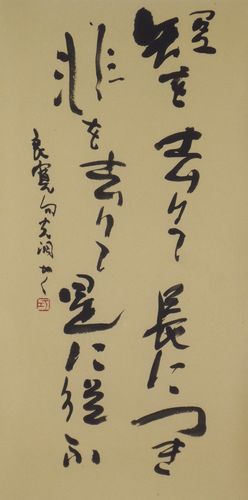 短を去りて長につき
非を去りて是に従ふ
良寛句